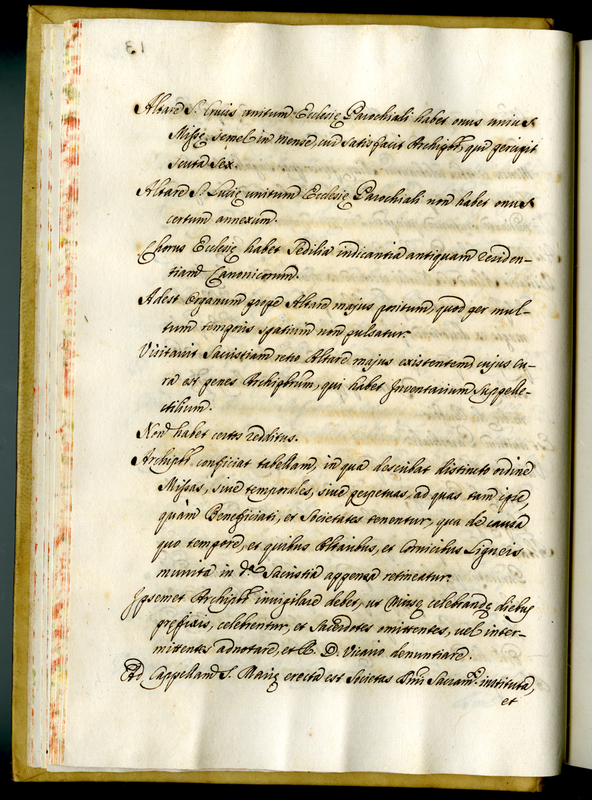 13
Altare S. Crucis unitum Ecclesię Parochiali habet onus unius
Missę semel in mense, cui satisfacit Archipbr, qui percipit
scuta sex.
Altare S. Lucię unitum Ecclesię Parochiali non habet onus
certum annexum.
Chorus Ecclesię habet sedilia indicantia antiquam residen-
tiam Canonicorum.
Adest Organum prope Altare majus positum, quod per mul-
tum temporis spatium non pulsatur.
Visitavit Sacristiam retro Altare majus existentem, cujus cu-
ra est penes Archipbrum, qui habet Inventarium suppelle-
ctilium.
Non habet certos redditus.
Archipbr conficiat tabellam, in qua describat distincto ordine
Missas, sive temporales, sive perpetuas, ad quas tam ipse,
quàm Beneficiati, et Societates tenentur, qua de causa
quo tempore, et quibus Altaribus, et Cornicibus Ligneis
munita in d.ª Sacristia appensa retineatur.
Ipsemet Archipbr invigilare debet, ut Missę celebrandę diebus
pręfixis, celebrentur, et Sacerdotes omittentes, vel inter-
mittentes adnotare, et R. D. Vicario denuntiare.
Ad Cappellam S. Marię erecta est Societas Smi Sacram. instituta,
et